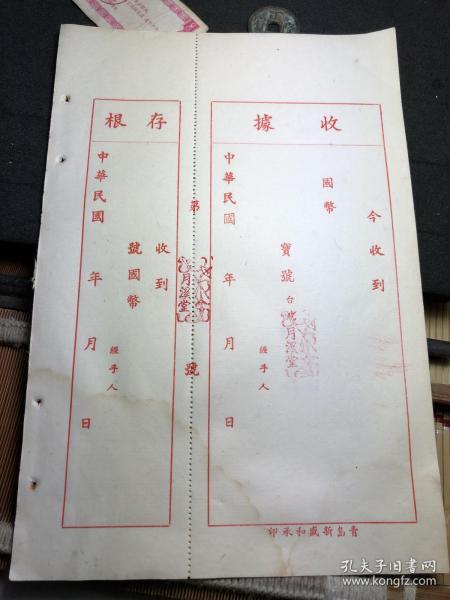 收據
今收到
國幣
寶號台
經手人
中華民國 年 月 日
第 號
月溪堂
月溪堂
存根
收到
號國幣
經手人
中華民國 年 月 日
青島新盛和承印
孔夫子旧书网
www.kongfz.com